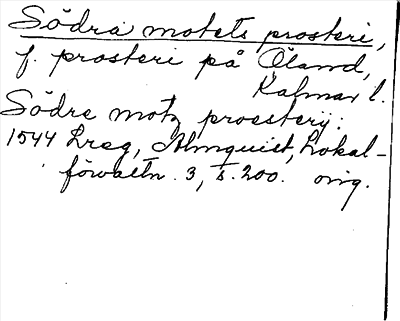 Södra motets prosteri,
f. prosteri på Öland,
Kalmar l.
Södre motz proesterij:
1544 Lreg, Almquist, Lokal-
förvaltn. 3, s. 200. orig.